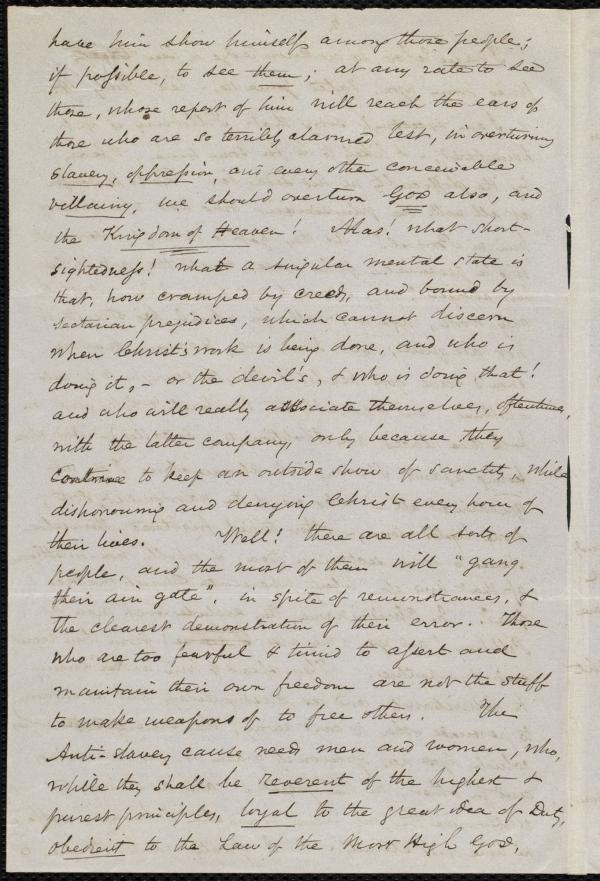 have him show himself among those people;
if possible, to see them; at any rate to see
those, whose report of him will reach the ears of
those who are so terribly alarmed lest, in overturning
slavery, oppression, and every other conceivable
villainy, we should overturn God also, and
the Kingdom of Heaven! Alas! what short-
sightedness! what a singular mental state is
that, how cramped by creeds, and bound by
sectarian prejudices, which cannot discern
when Christ's work is being done, and who is
doing it, - or the devil's, & who is doing that!
and who will really associate themselves, oftentimes,
with the latter company, only because they
continue to keep an outside show of sanctity, while
dishonouring and denying Christ every hour of
their lives. Well! there are all sorts of
people, and the most of them will "gang
their ain gate", in spite of remonstrances, &
the clearest demonstration of their error. Those
who are too fearful & timid to assert and
maintain their own freedom are not the stuff
to make weapons of to free others. The
Anti-slavery cause needs men and women, who,
while they shall be reverent of the highest &
purest principles, loyal to the great idea of Duty,
obedient to the Law of the Most High God,